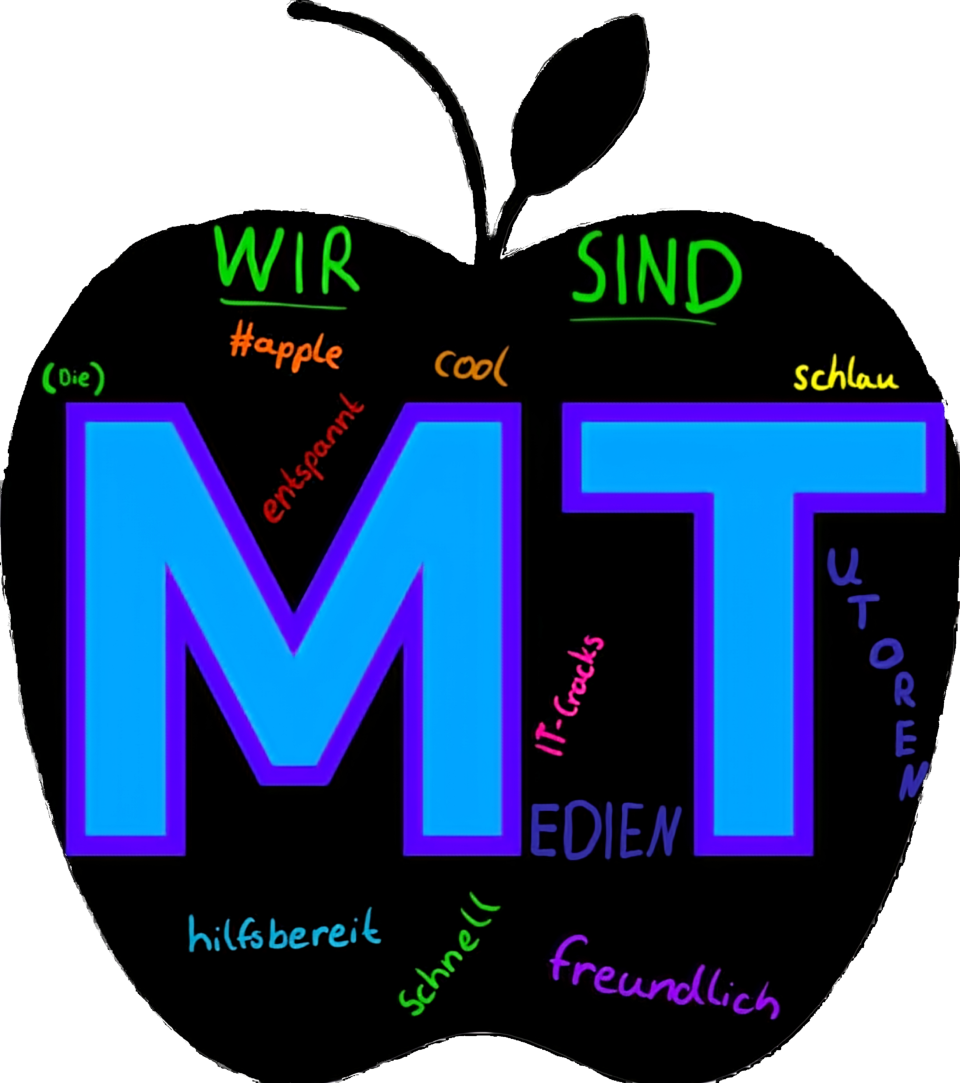 WIR SIND
#apple
cool
(Die)
schlau
entspannt
MT
UTOREN
IT-Cracks
EDIEN
hilfsbereit
schnell
freundlich